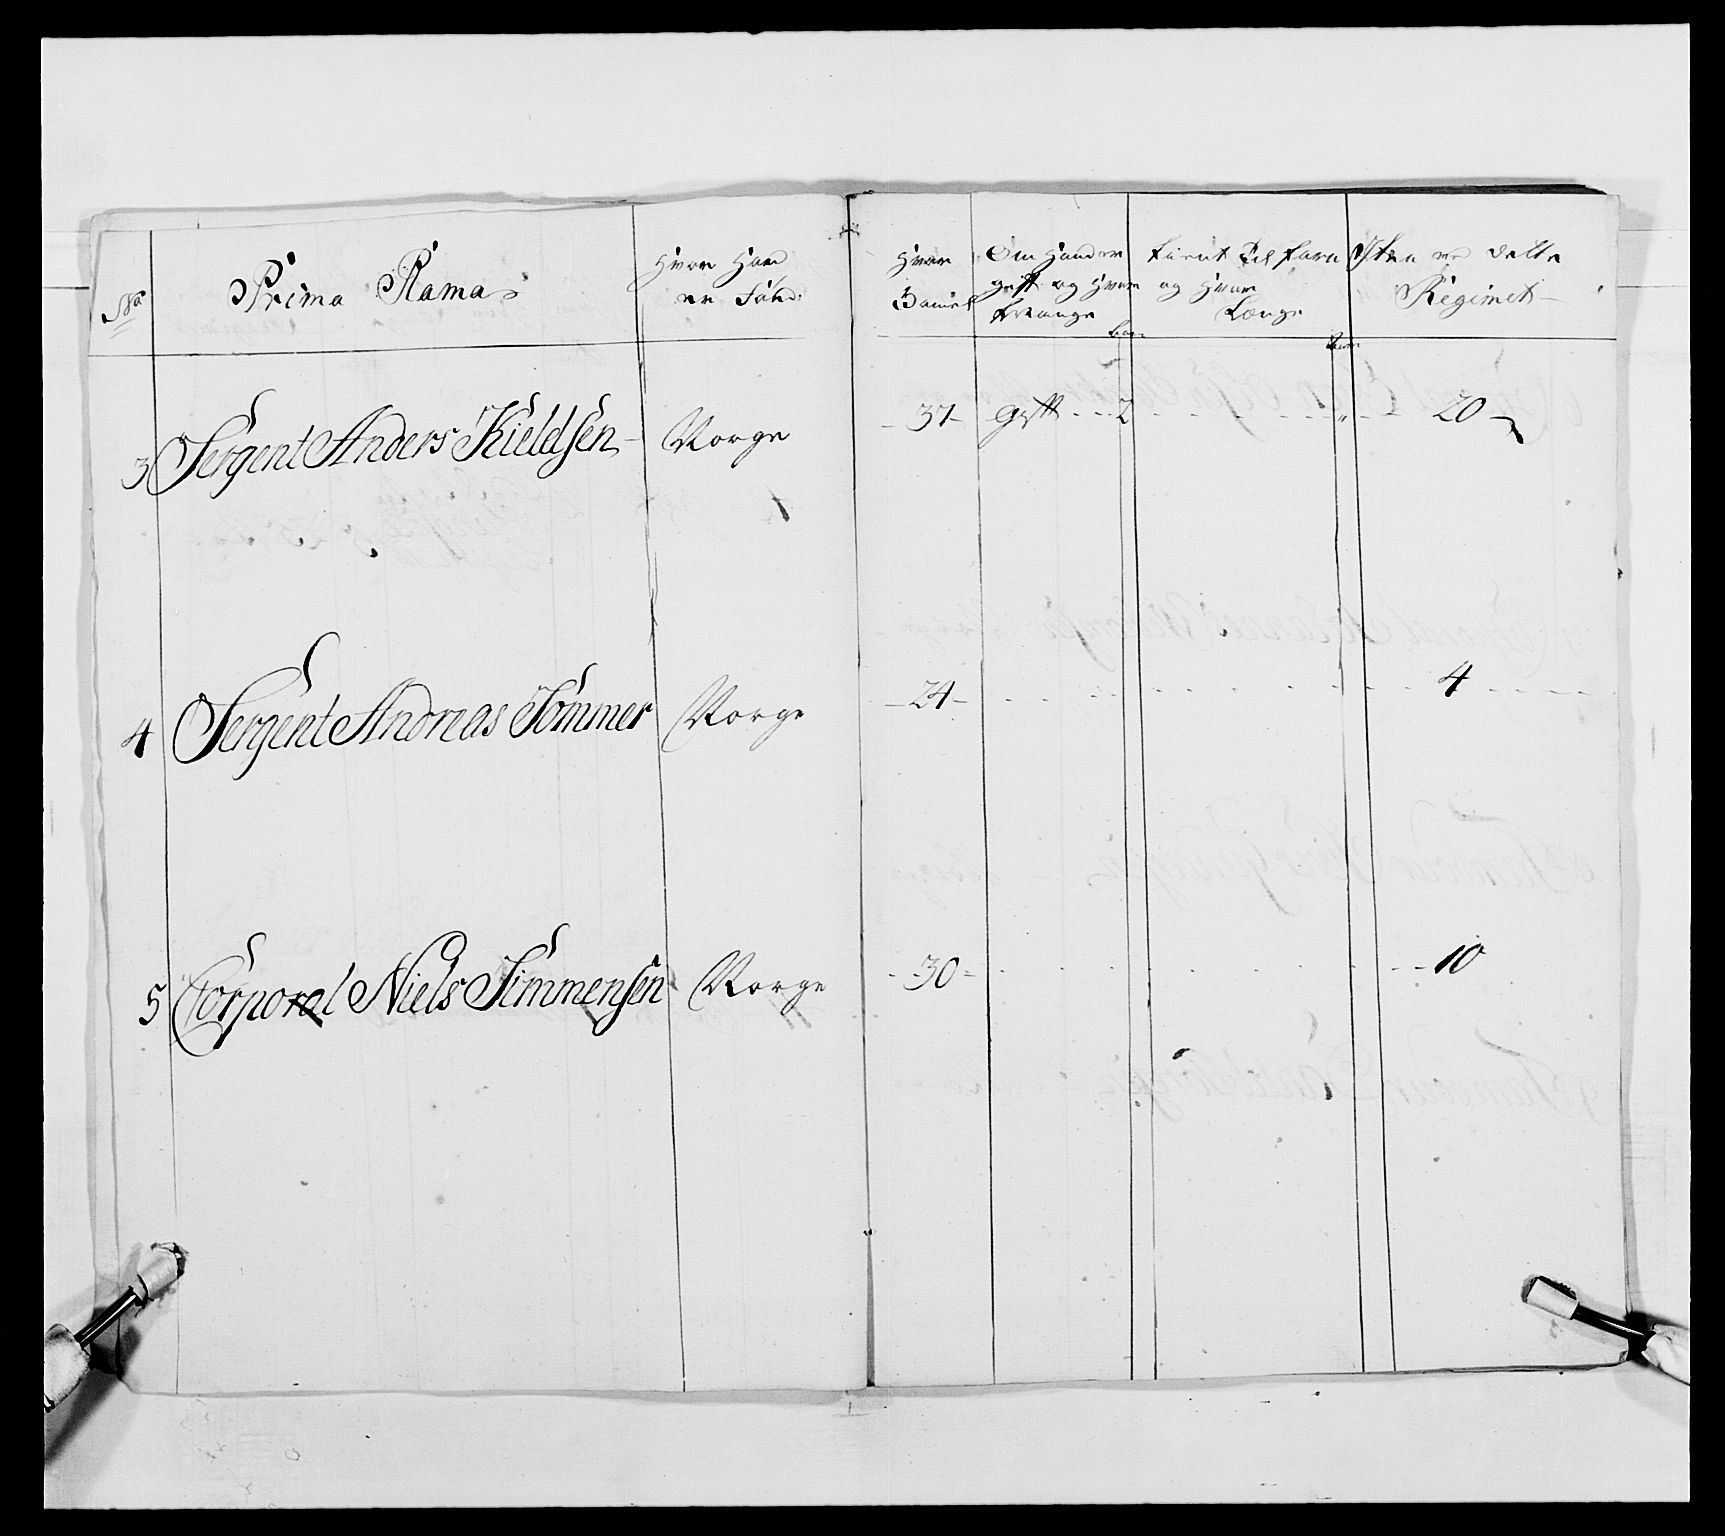 No Prima Plana Hvor Hand er Fød: Hvor Gamel Om Hand er gift og Hvor Mange Børn Tient Til Forn og Hvor Længe Aar Udi dette Regimet
3 Sergent Anders Kieldsen Norge 37 gift 2 " 20
4 Sergent Andreas Tømmer Norge 24 4
5 Corporal Niels Simmensen Norge 30 10